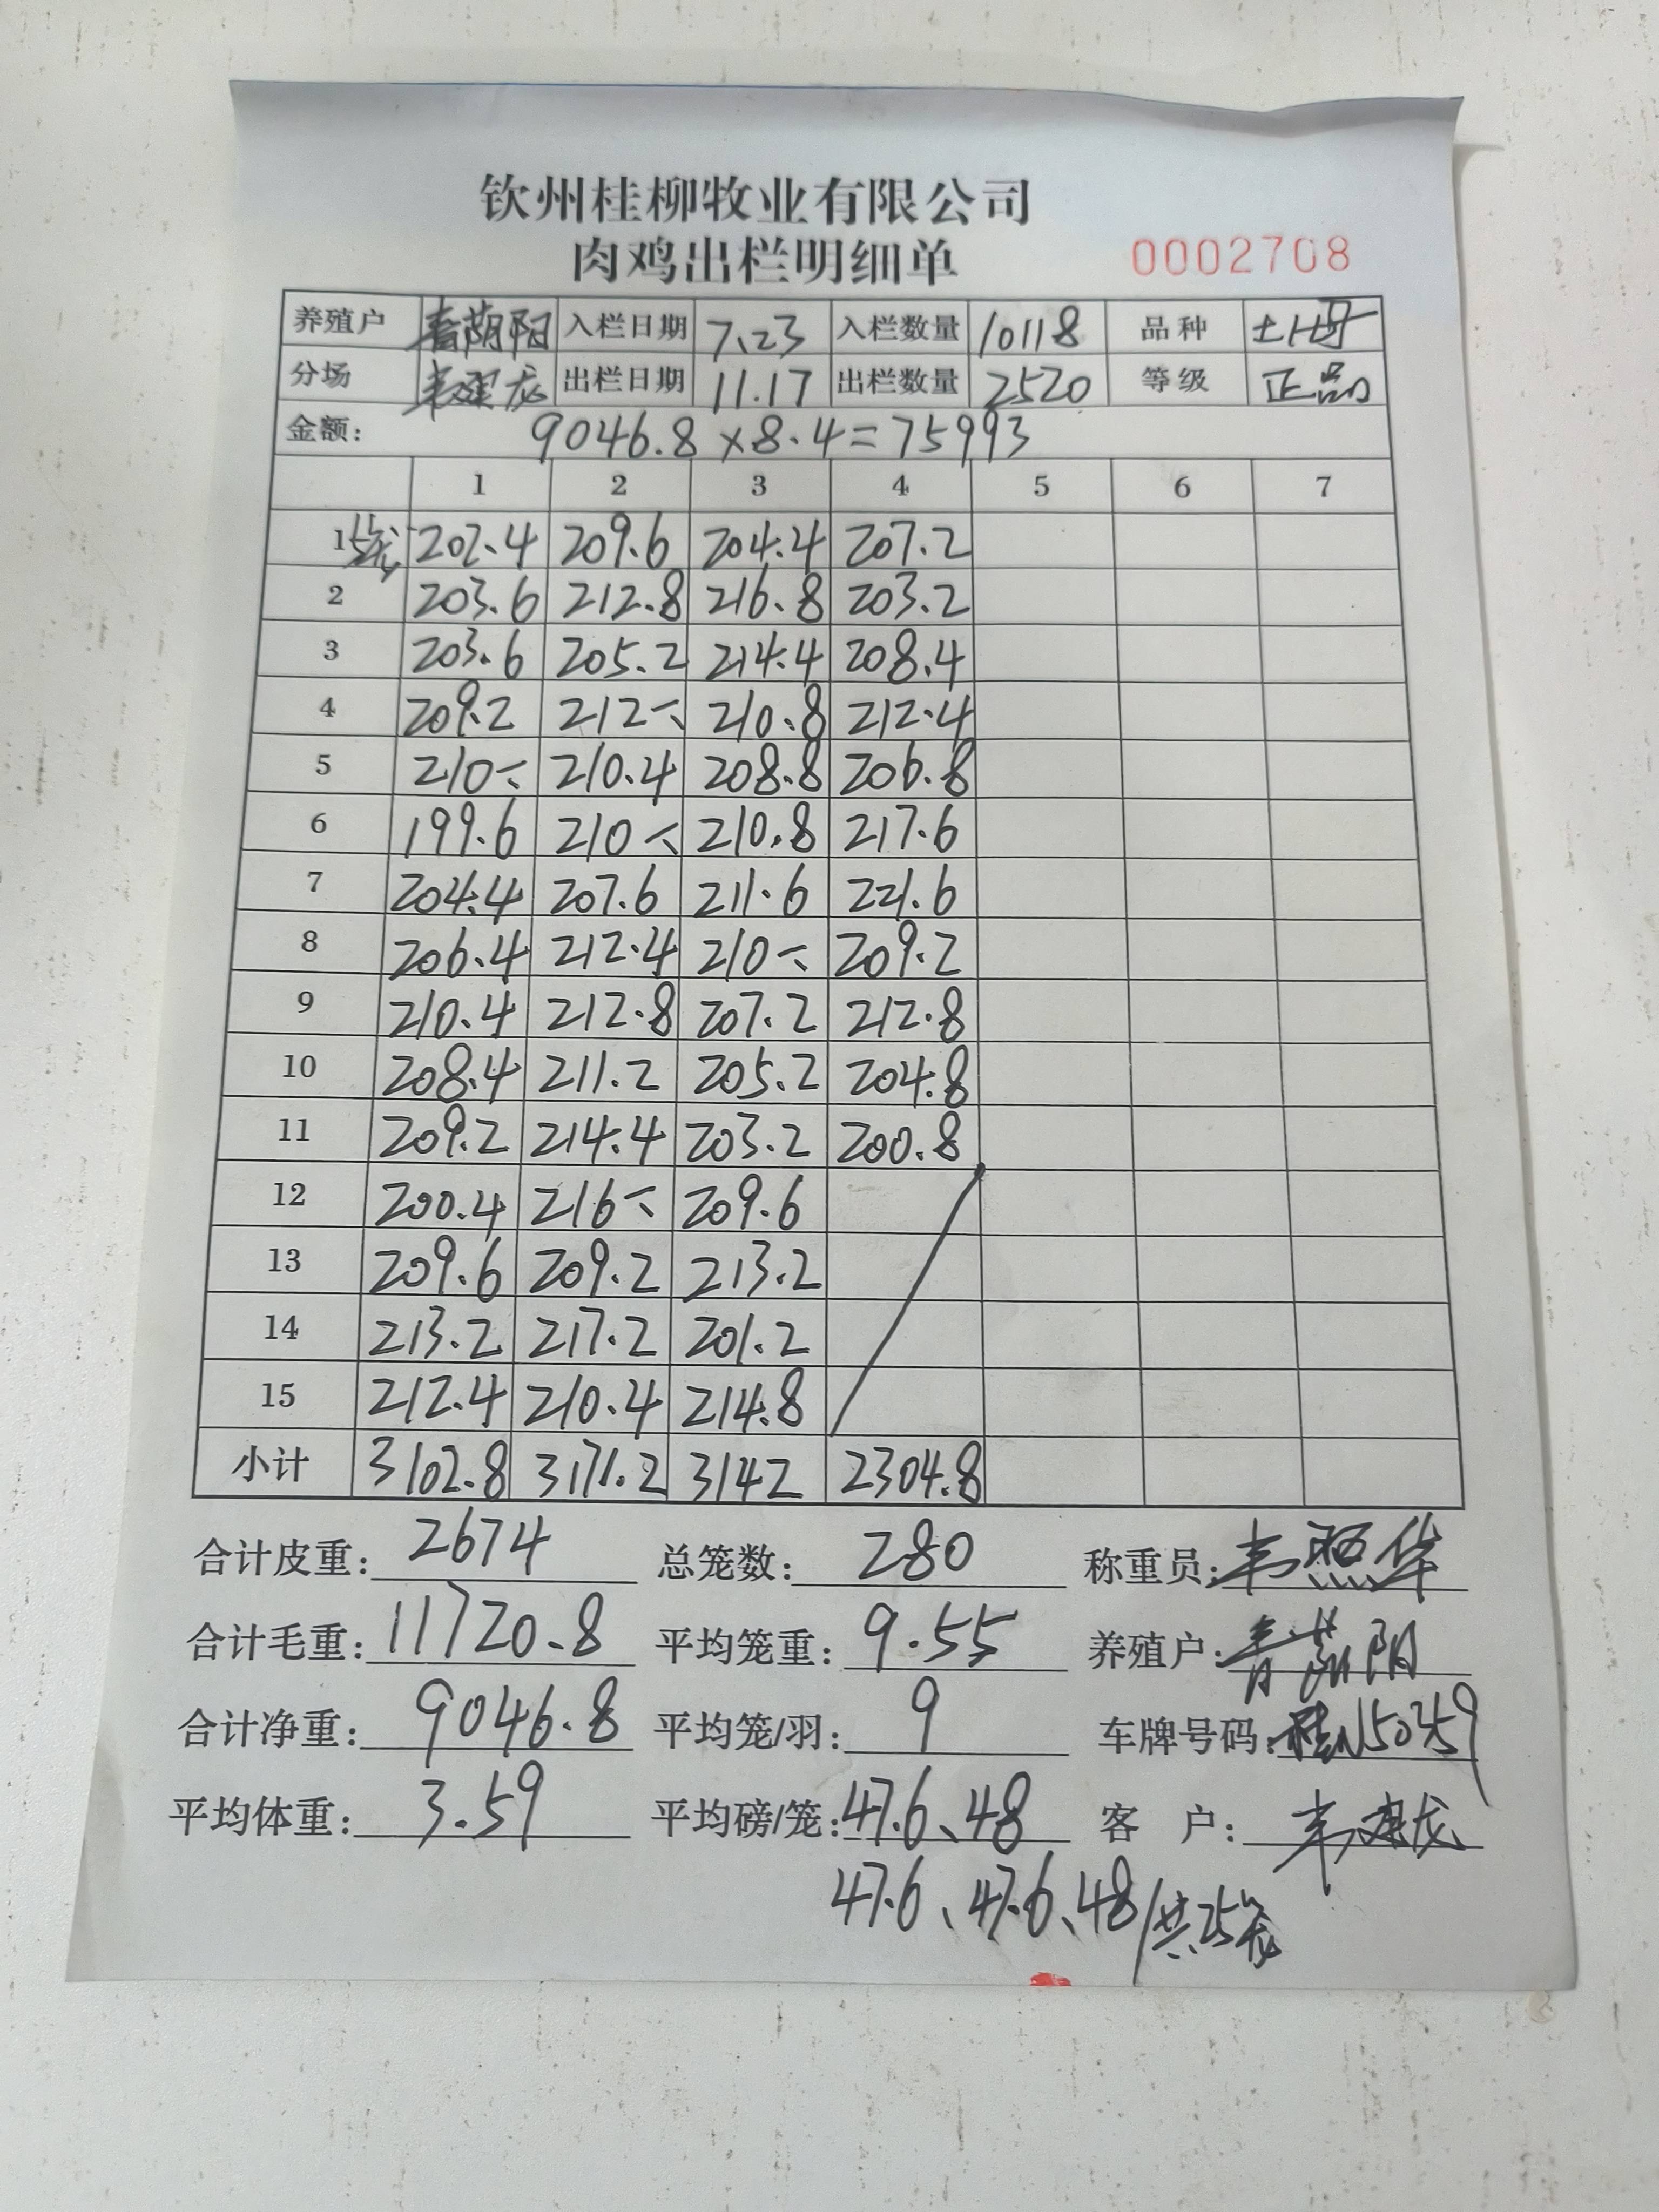 钦州桂柳牧业有限公司
肉鸡出栏明细单 0002708
养殖户 入栏日期 7.23 入栏数量 10118 品种 土
分场 韦建龙 出栏日期 11.17 出栏数量 2520 等级 正品
金额: 9046.8×8.4=75993
1 2 3 4 5 6 7
1 202.4 209.6 204.4 207.2
2 203.6 212.8 216.8 203.2
3 203.6 205.2 214.4 208.4
4 209.2 212 210.8 212.4
5 210 210.4 208.8 206.8
6 199.6 210 210.8 217.6
7 204.4 207.6 211.6 221.6
8 206.4 212.4 210 209.2
9 210.4 212.8 207.2 212.8
10 208.4 211.2 205.2 204.8
11 209.2 214.4 203.2 200.8
12 200.4 216 209.6
13 209.6 209.2 213.2
14 213.2 217.2 201.2
15 212.4 210.4 214.8
小计 3102.8 3171.2 3142 2304.8
合计皮重: 2674 总笼数: 280 称重员: 韦照华
合计毛重: 11720.8 平均笼重: 9.55 养殖户:
合计净重: 9046.8 平均笼/羽: 9 车牌号码: 桂N50359
平均体重: 3.59 平均磅/笼: 47.6、48 客户: 韦建龙
47.6、47.6、48/共25笼